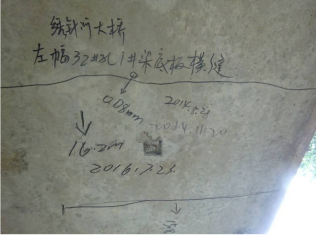 绣针河大桥
左幅32#孔1#梁底板横缝
0.08mm
2014.5.21
2014.11.20
16.2m
2016.7.23